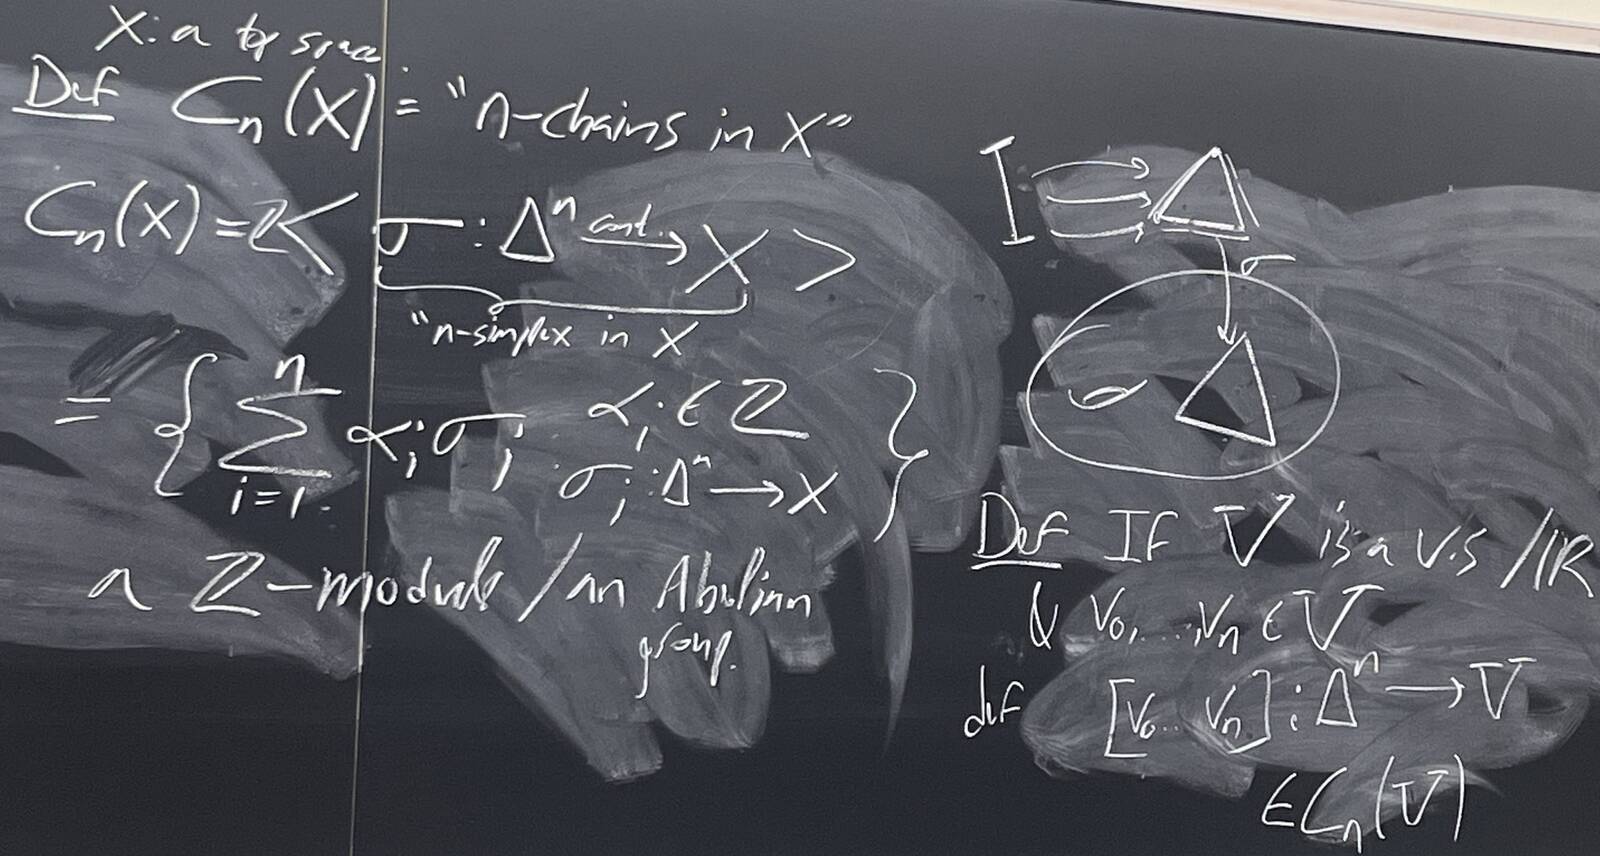 X: a top space
Def Cₙ(X) = "n-chains in X"
Cₙ(X) = ℤ< σ : Δⁿ cont.→ X >
"n-simplex in X
= { ∑ᵢ₌₁ⁿ αᵢσᵢ αᵢ ∈ ℤ σᵢ : Δⁿ → X }
a ℤ-module / an Abelian
group.
σ
Def If V is a V.S /ℝ
& v₀,...,vₙ ∈ V
def [v₀...vₙ] : Δⁿ → V
∈ Cₙ(V)